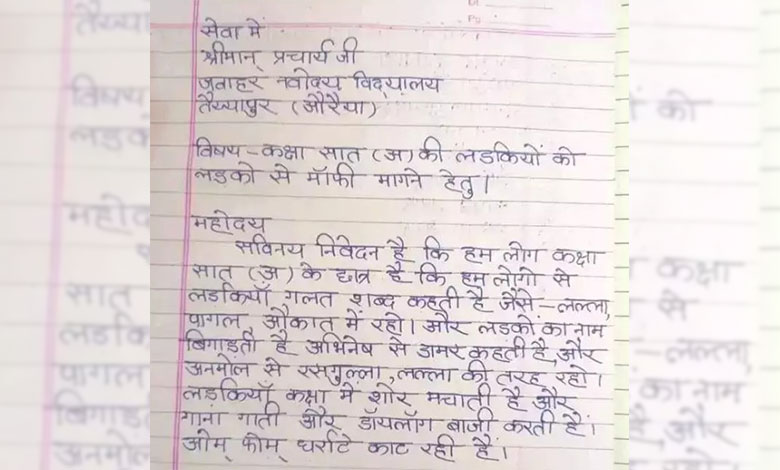 सेवा में
श्रीमान् प्रचार्य जी
जवाहर नवोदय विद्यालय
तैय्यापुर (औरैया)
विषय - कक्षा सात (अ) की लडकियों को
लडको से माँफी मागने हेतु।
महोदय
सविनय निवेदन है कि हम लोग कक्षा
सात (अ) के छात्र है कि हम लोगो से
लडकियाँ गलत शब्द कहती है जैसे - लल्ला,
पागल, औकात में रहो। और लडकों का नाम
बिगाड़ती है अभिनेष से डामर कहती है, और
अनमोल से रसगुल्ला, लल्ला की तरह रहो।
लडकियाँ कक्षा में शोर मचाती है और
गाना गाती और डॉयलॉग बाजी करती हैं।
ओम् फोम् धर्राटे काट रही है।